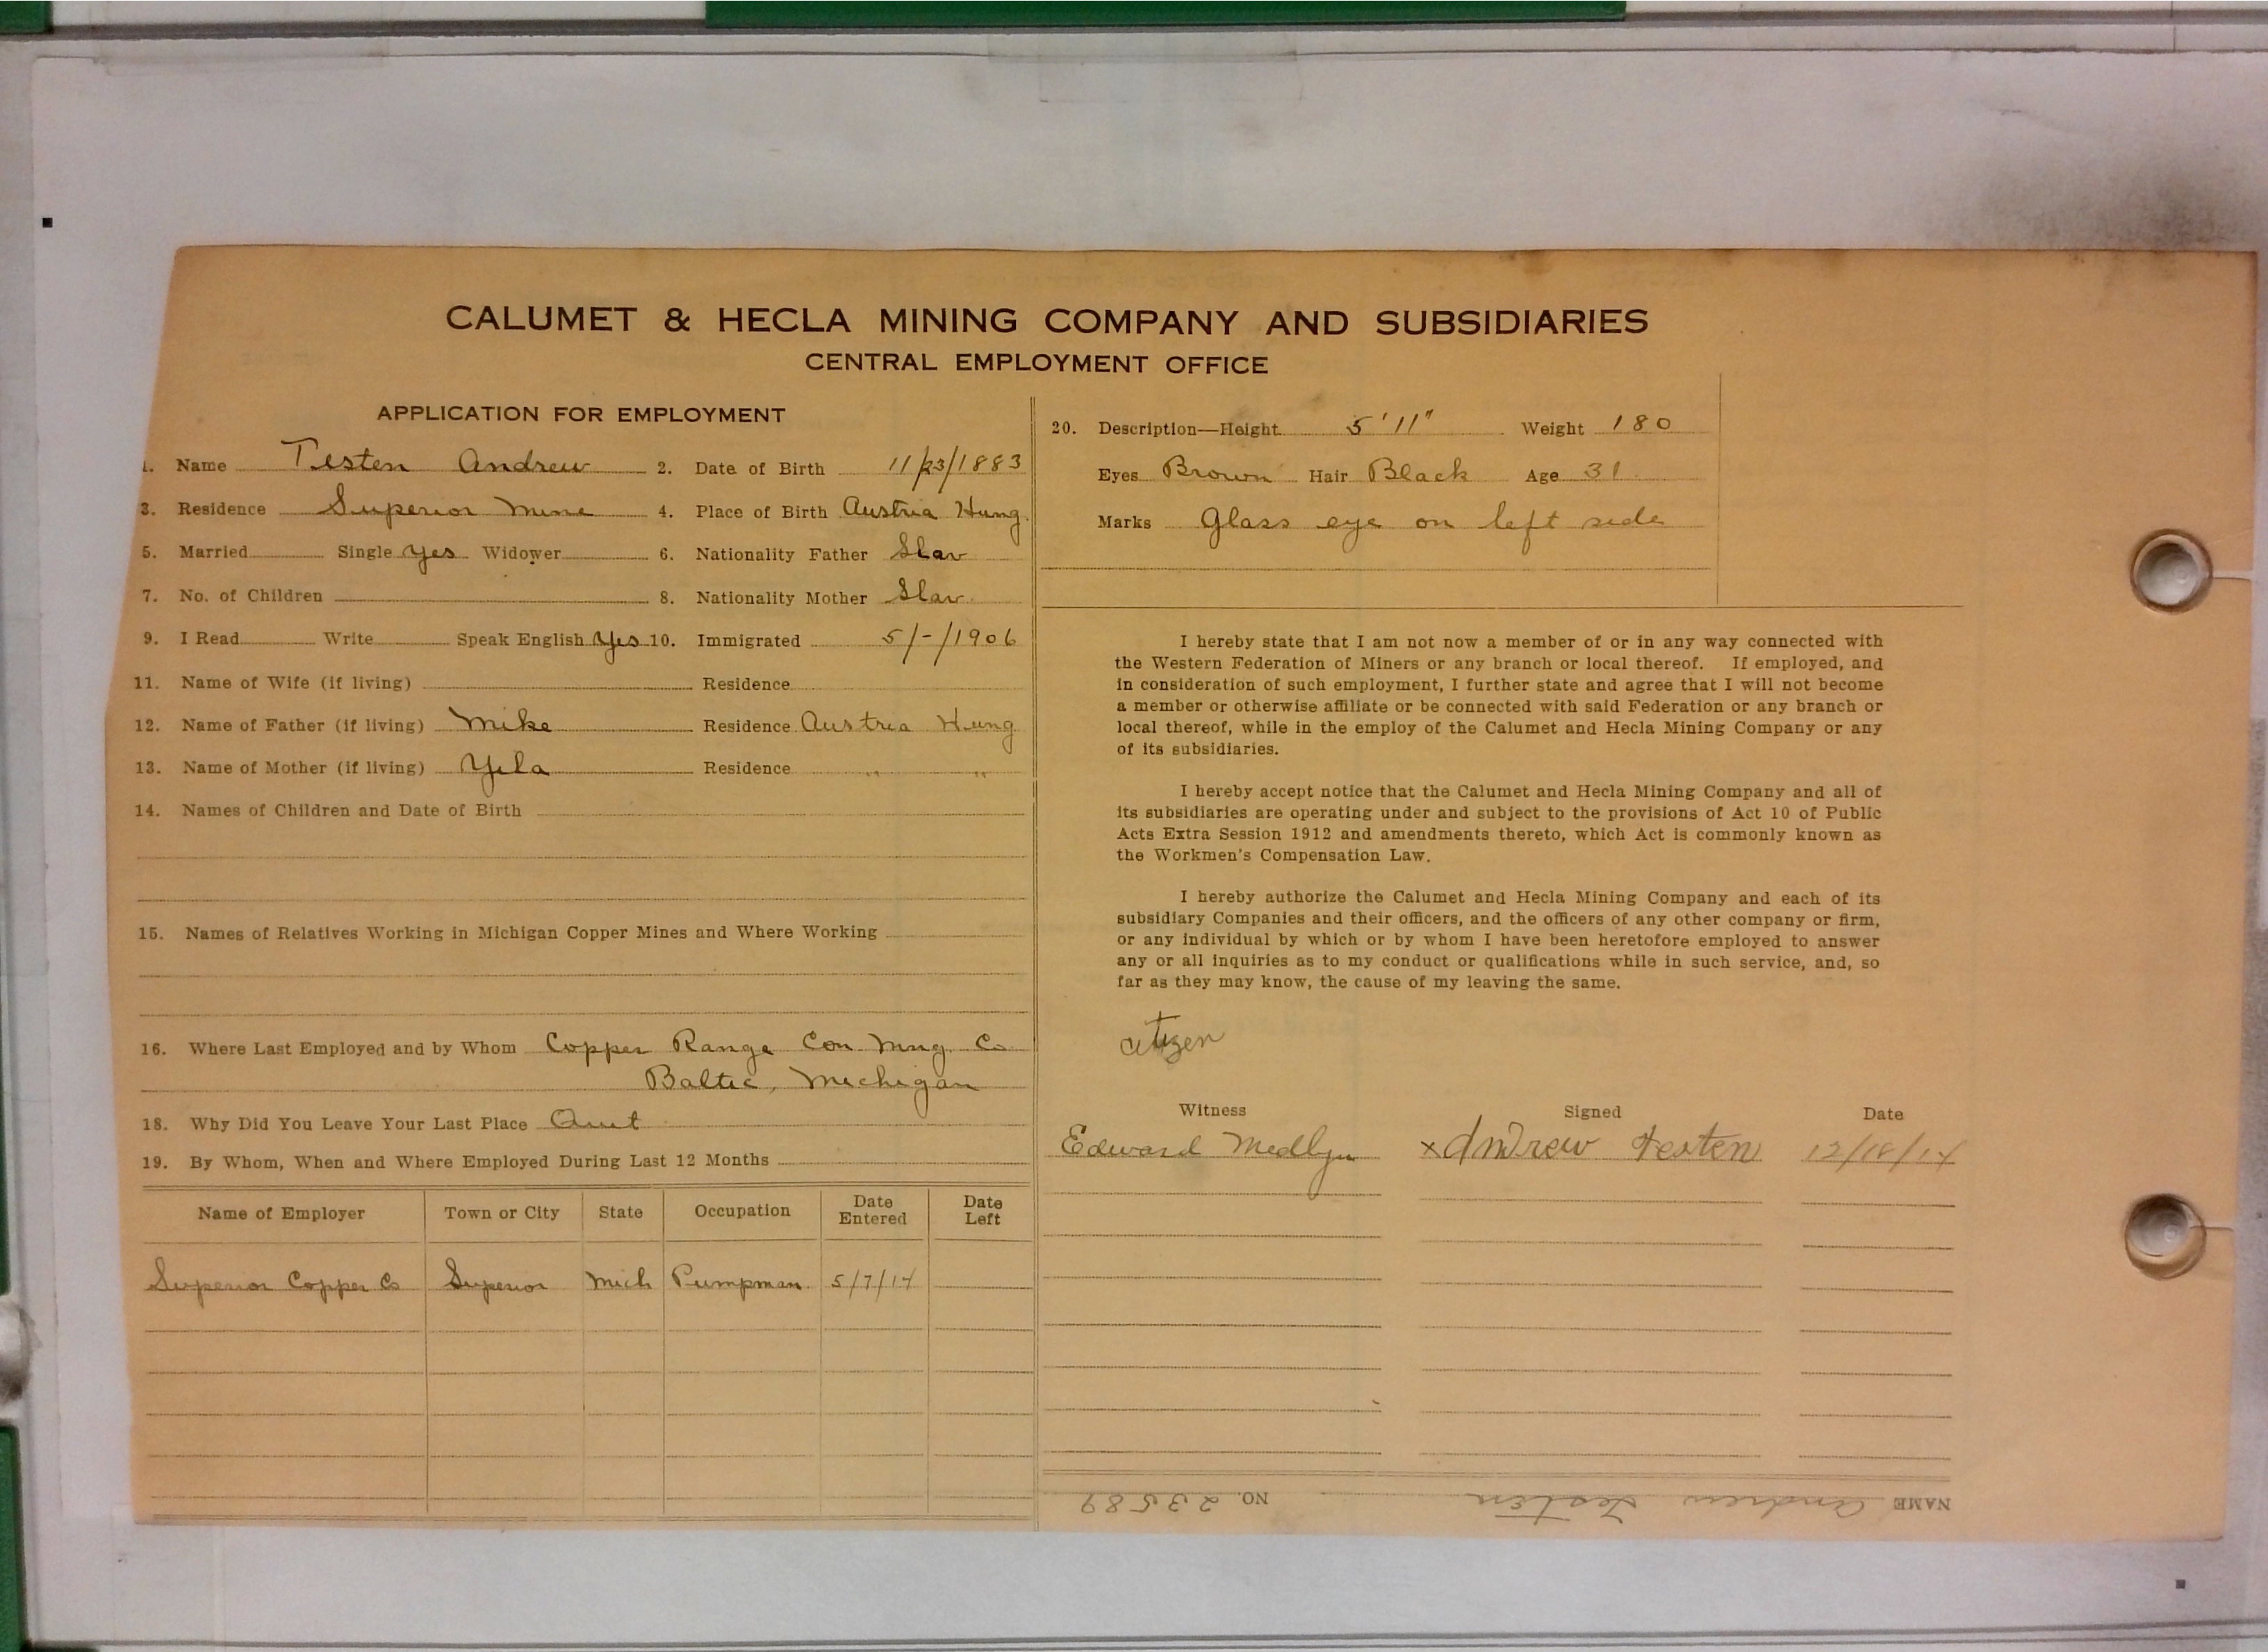 CALUMET & HECLA MINING COMPANY AND SUBSIDIARIES
CENTRAL EMPLOYMENT OFFICE
APPLICATION FOR EMPLOYMENT
1. Name Testen Andrew 2. Date of Birth 11/23/1883
3. Residence Superior Mine 4. Place of Birth Austria Hung.
5. Married Single Yes Widower 6. Nationality Father Slav
7. No. of Children 8. Nationality Mother Slav.
9. I Read Write Speak English Yes 10. Immigrated 5/-/1906
11. Name of Wife (if living) Residence
12. Name of Father (if living) Mike Residence Austria Hung
13. Name of Mother (if living) Yela Residence " "
14. Names of Children and Date of Birth
15. Names of Relatives Working in Michigan Copper Mines and Where Working
16. Where Last Employed and by Whom Copper Range Con. Mng. Co
Baltic, Michigan
18. Why Did You Leave Your Last Place Quit
19. By Whom, When and Where Employed During Last 12 Months
Name of Employer Town or City State Occupation Date Entered Date Left
Superior Copper Co Superior Mich Pumpman 5/7/14
20. Description—Height 5'11" Weight 180
Eyes Brown Hair Black Age 31
Marks Glass eye on left side
I hereby state that I am not now a member of or in any way connected with
the Western Federation of Miners or any branch or local thereof. If employed, and
in consideration of such employment, I further state and agree that I will not become
a member or otherwise affiliate or be connected with said Federation or any branch or
local thereof, while in the employ of the Calumet and Hecla Mining Company or any
of its subsidiaries.
I hereby accept notice that the Calumet and Hecla Mining Company and all of
its subsidiaries are operating under and subject to the provisions of Act 10 of Public
Acts Extra Session 1912 and amendments thereto, which Act is commonly known as
the Workmen's Compensation Law.
I hereby authorize the Calumet and Hecla Mining Company and each of its
subsidiary Companies and their officers, and the officers of any other company or firm,
or any individual by which or by whom I have been heretofore employed to answer
any or all inquiries as to my conduct or qualifications while in such service, and, so
far as they may know, the cause of my leaving the same.
citizen
Witness Signed Date
Edward Medlyn x Andrew Testen 12/18/14
NAME Andrew Testen NO. 23589